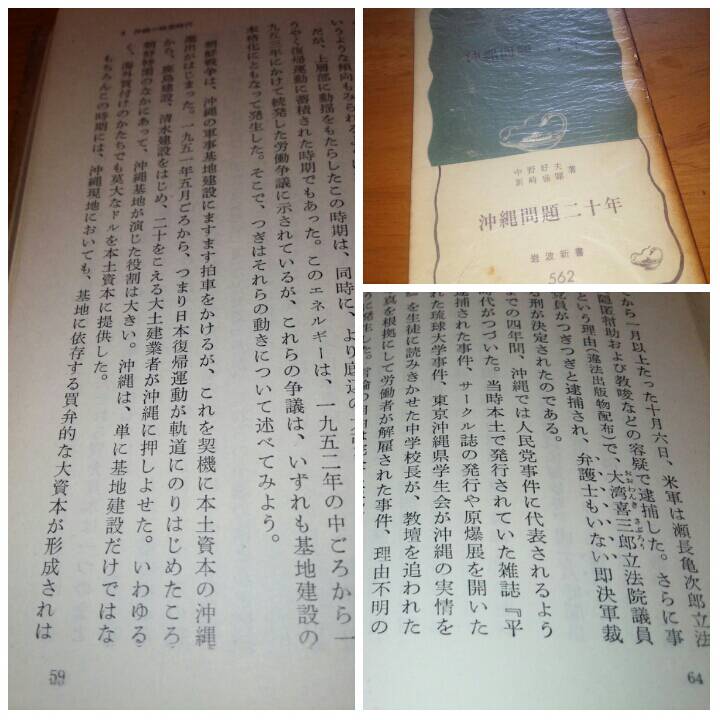 いうような傾向もみられる
だが、上層部に動揺をもたらしたこの時期は、同時に、より底辺の
うやく復帰運動に蓄積された時期でもあった。このエネルギーは、一九五二年の中ごろから一
九五三年にかけて続発した労働争議に示されているが、これらの争議は、いずれも基地建設の
本格化にともなって発生した。そこで、つぎはそれらの動きについて述べてみよう。
朝鮮戦争は、沖縄の軍事基地建設にますます拍車をかけるが、これを契機に本土資本の沖縄
進出がはじまった。一九五一年五月ごろから、つまり日本復帰運動が軌道にのりはじめたころ
から、鹿島建設、清水建設をはじめ、二十をこえる大土建業者が沖縄に押しよせた。いわゆる
朝鮮特需のなかにあって、沖縄基地が演じた役割は大きい。沖縄は、単に基地建設だけではな
く、海外買付けのかたちでも莫大なドルを本土資本に提供した。
もちろんこの時期には、沖縄現地においても、基地に依存する買弁的な大資本が形成されは
59
中野好夫
新崎盛暉 著
沖縄問題二十年
岩波新書
562
から一月以上たった十月六日、米軍は瀬長亀次郎立法
隠匿幇助および教唆などの容疑で逮捕した。さらに事
という理由(違法出版物配布)で、大湾喜三郎立法院議員
おおわんきさぶろう
党員がつぎつぎと逮捕され、弁護士もいない即決軍裁
る刑が決定されたのである。
までの四年間、沖縄では人民党事件に代表されるよう
時代がつづいた。当時本土で発行されていた雑誌『平
逮捕された事件、サークル誌の発行や原爆展を開いた
れた琉球大学事件、東京沖縄県学生会が沖縄の実情を
』を生徒に読みきかせた中学校長が、教壇を追われた
真を根拠にして労働者が解雇された事件、理由不明の
に発生した。
64